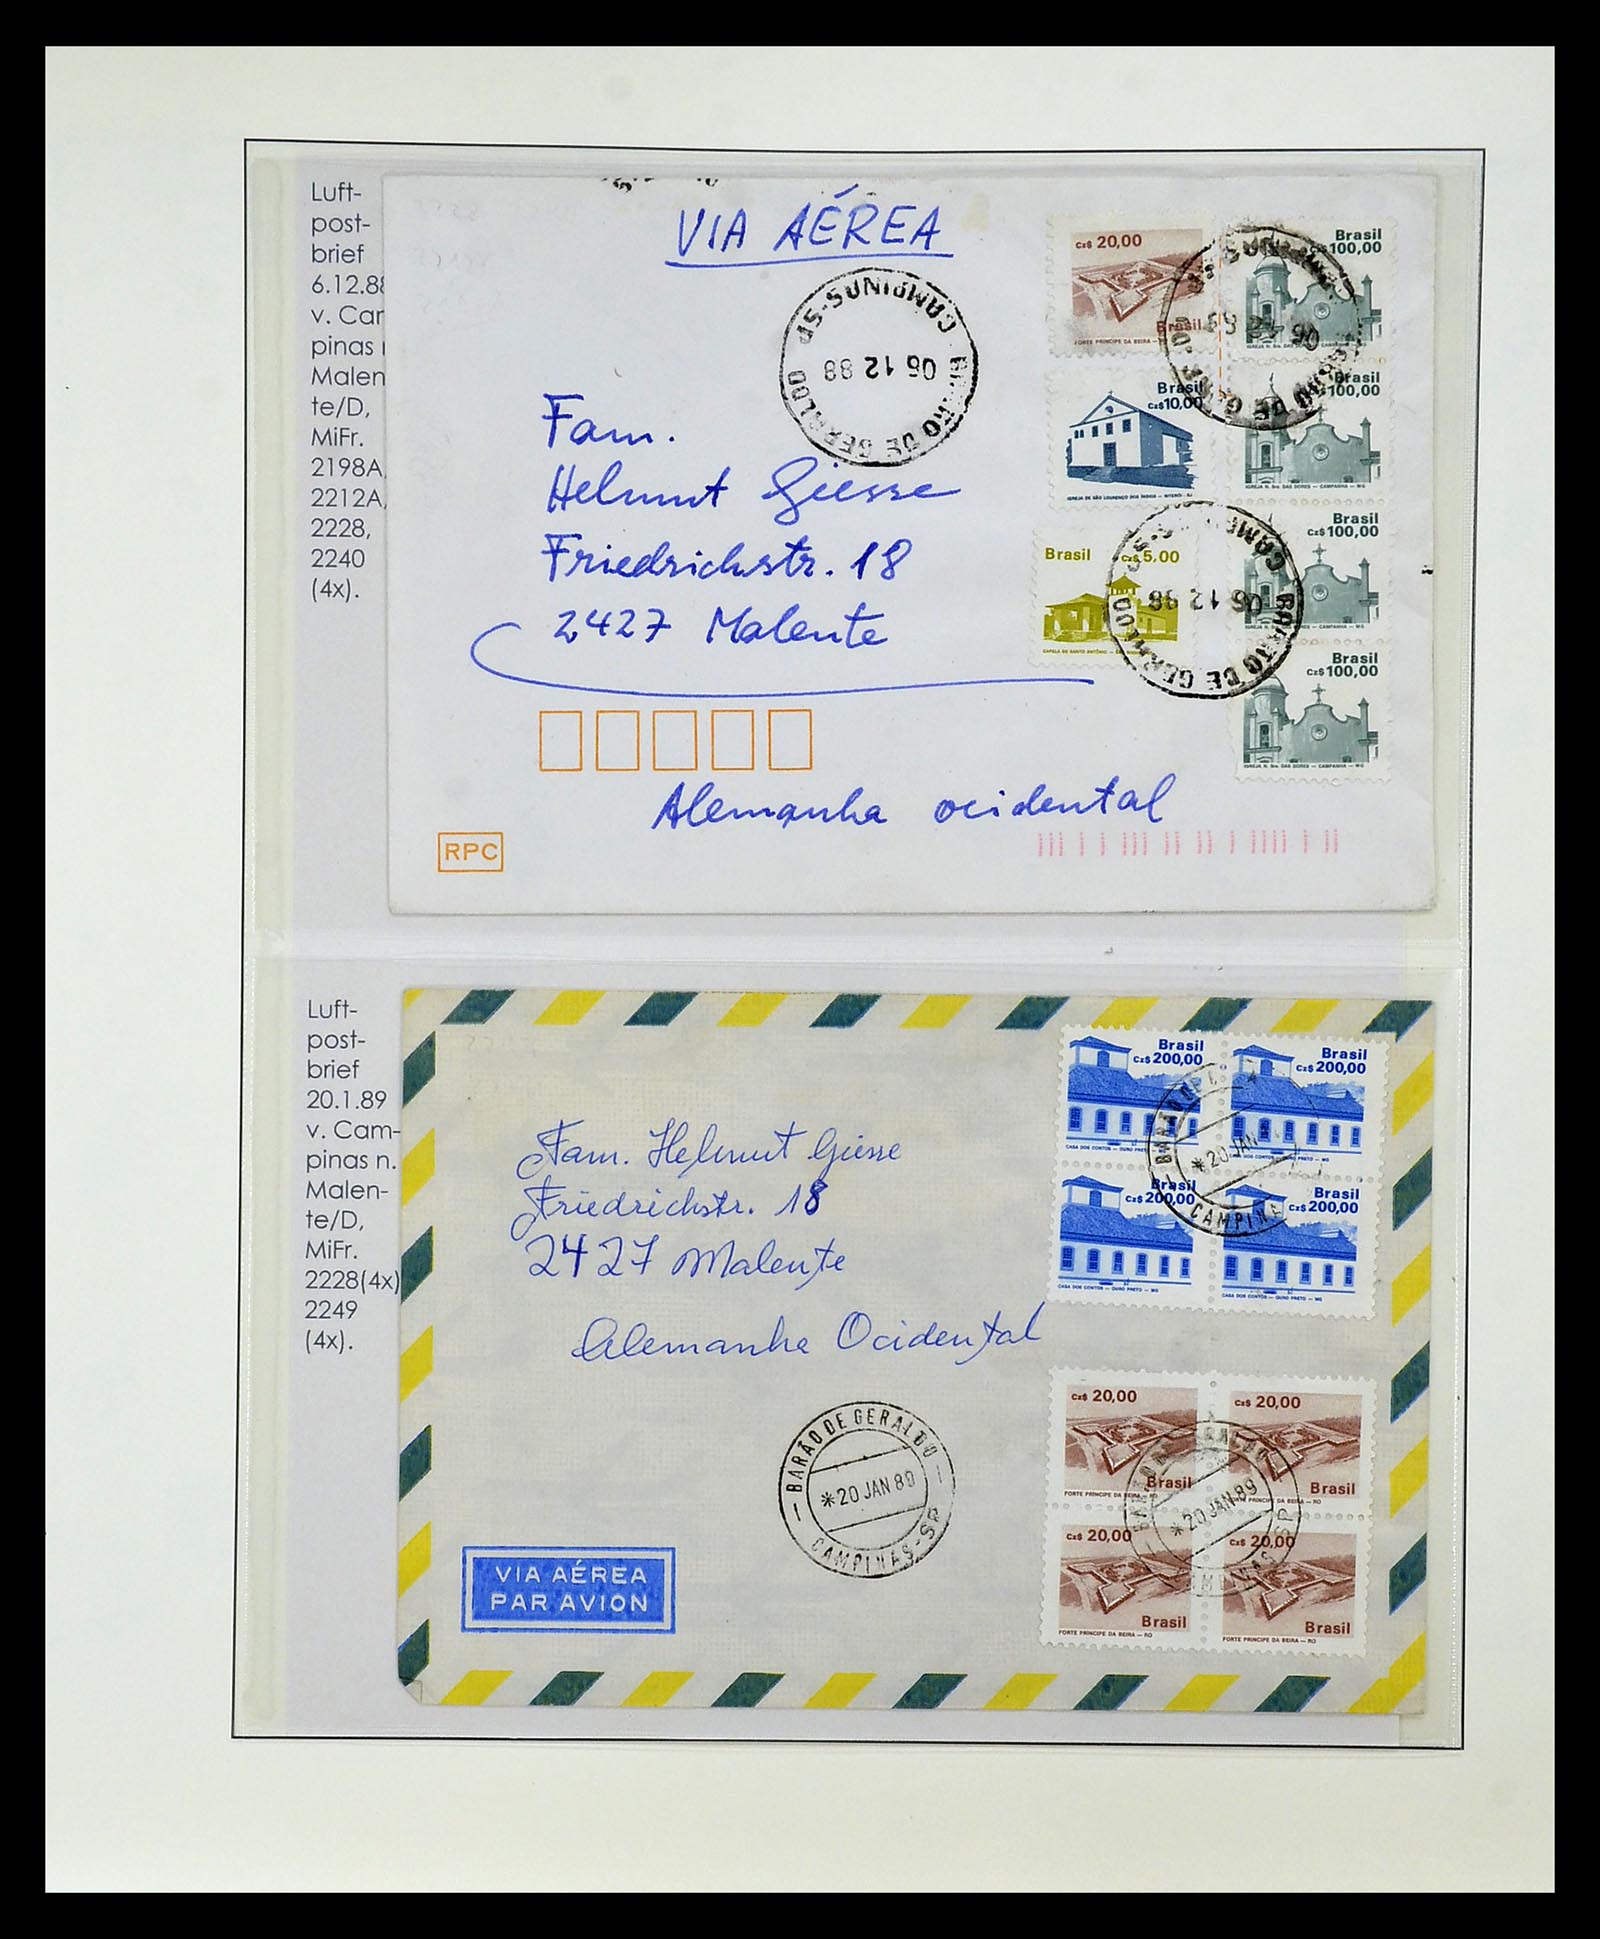 Luft-
post-
brief
6.12.88
v. Cam
pinas
Malen
te/D,
MiFr.
2198A,
2212A,
2228,
2240
(4x).
VIA AÉREA
CAMPINAS-SP
06 12 88
BARÃO DE GERALDO
Cz$ 20,00
Brasil
FORTE PRINCIPE DA BEIRA —
Brasil
Cz$ 100,00
IGREJA N. Sra. DAS DORES — CAMPANHA — MG
06 12 88
Brasil
Cz$ 10,00
IGREJA DE SÃO LOURENÇO DOS ÍNDIOS — NITERÓI — RJ
Brasil
Cz$ 100,00
IGREJA N. Sra. DAS DORES — CAMPANHA — MG
Brasil Cz$ 5,00
CAPELA DE SANTO ANTÔNIO —
Brasil
Cz$ 100,00
IGREJA N. Sra. DAS DORES — CAMPANHA — MG
06 12 88
BARÃO DE GERALDO
Brasil
Cz$ 100,00
IGREJA N. Sra. DAS DORES — CAMPANHA — MG
Fam.
Helmut Giesse
Friedrichstr. 18
2427 Malente
Alemanha ocidental
RPC
Luft-
post-
brief
20.1.89
v. Cam-
pinas n.
Malen-
te/D,
MiFr.
2228(4x)
2249
(4x).
Fam. Helmut Giesse
Friedrichstr. 18
2427 Malente
Alemanha Ocidental
Brasil
Cz$ 200,00
CASA DOS CONTOS — OURO PRETO —
Brasil
Cz$ 200,00
CASA DOS CONTOS — OURO PRETO — MG
Brasil
Cz$ 200,00
CASA DOS CONTOS — OURO PRETO — MG
Brasil
Cz$ 200,00
CASA DOS CONTOS — OURO PRETO — MG
*20 JAN
CAMPINA
BARÃO DE GERALDO
*20 JAN 89
CAMPINAS-SP
Cz$ 20,00
Brasil
FORTE PRINCIPE DA BEIRA — RO
Cz$ 20,00
Brasil
FORTE PRINCIPE DA BEIRA — RO
Cz$ 20,00
Brasil
FORTE PRINCIPE DA BEIRA — RO
Cz$ 20,00
Brasil
FORTE PRINCIPE DA BEIRA — RO
*20 JAN 89
VIA AÉREA
PAR AVION